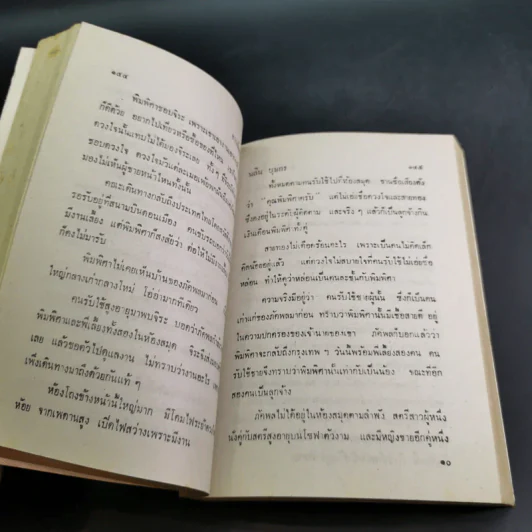 ๑๔๔
พิมพิศาชอบจิระ เพราะเขา
ก็ดีด้วย อยากไปเที่ยวหรือซื้อของที่ไหน
ดวงใจนั้นแทบไม่ได้มองจิระเลย
ชอบดวงใจ ดวงใจมัวแต่
มองไม่เห็นผู้ชายหน้าไหนทั้งนั้น
คณะเดินทางกลับถึงประเทศไทยโดย
รอรับอยู่ที่สนามบินดอนเมือง คนขับรถ
มีงานเลี้ยง แต่พิมพิศาก็สงสัยว่า ต่อให้ไม่มี
ก็คงไม่มารับ
พิมพิศาไม่เคยเห็นบ้านของภัคพลมาก่อน
ใหญ่กลางเก่ากลางใหม่ โอ่อ่ามากทีเดียว
คนรับใช้สูงอายุมาพบจิระ บอกว่าภัคพล
พิมพิศาและพี่เลี้ยงทั้งสองในห้องสมุด จิระ
เลย แล้วขอตัวไปดูแลงาน ไม่ทราบว่างานอะไร
เพิ่งเดินทางมาถึงด้วยกันแท้ ๆ
ห้องโถงข้างหน้านี้ใหญ่มาก มีโคมไฟระย้า
ห้อย จากเพดานสูง เปิดไฟสว่างเพราะมีงาน
นลิน บุษกร ๑๔๕
ทั้งหมดตามคนรับใช้ไปที่ห้องสมุด ชายชื่อเลียบถึง
ว่า “คุณพิมพิศาครับ” แต่ไม่เอ่ยชื่อดวงใจและสายทอง
ซึ่งคงอยู่ในระดับผู้ติดตาม และจริง ๆ แล้วก็เป็นลูกจ้างกิน
เงินเดือนพิมพิศา ทั้งคู่
สายทองไม่เดือดร้อนอะไร เพราะเป็นคนไม่คิดเล็ก
คิดน้อยอยู่แล้ว แต่ดวงใจไม่สบายใจที่คนรับใช้ไม่เอ่ยชื่อ
หล่อน ทำให้ดูว่าหล่อนเป็นคนละชั้นกับพิมพิศา
ความจริงมีอยู่ว่า คนรับใช้ชายผู้นั้น ซึ่งก็เป็นคน
เก่าแก่ของภัคพลมาก่อน ทราบว่าพิมพิศานั้นมีเชื้อสายดี อยู่
ในความปกครองของเจ้านายของเขา ภัคพลก็บอกแล้วว่า
พิมพิศาจะกลับถึงกรุงเทพ ฯ วันนี้พร้อมพี่เลี้ยงสองคน คน
รับใช้ชายจึงทราบว่าพิมพิศานั้นเท่ากับเป็นน้อง ขณะที่อีก
สองคนเป็นลูกจ้าง
ภัคพลไม่ได้อยู่ในห้องสมุดตามลำพัง สตรีสาวผู้หนึ่ง
นั่งคู่กับสตรีสูงอายุบนโซฟาตัวงาม และมีหญิงชายอีกคู่หนึ่ง
๑๐